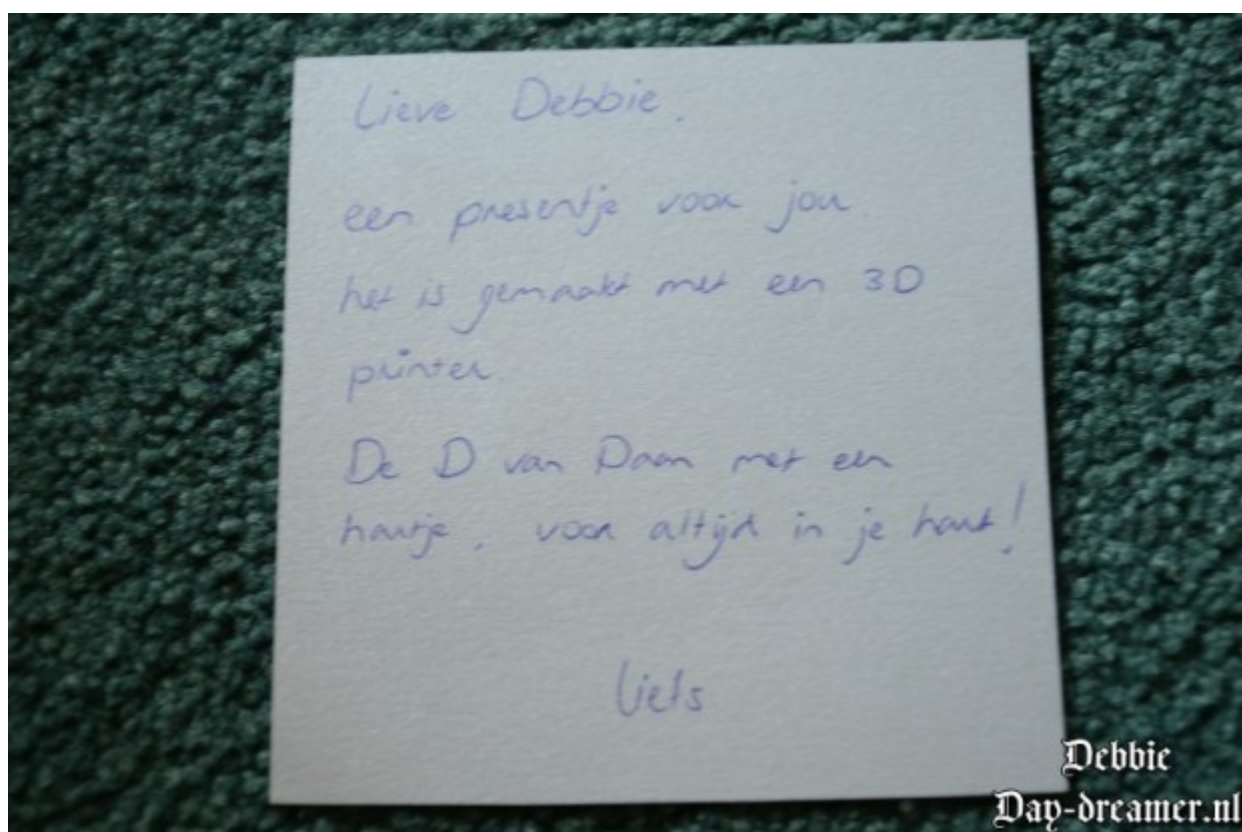 Lieve Debbie,
een presentje voor jou.
het is gemaakt met een 3D
printer.
De D van Daan met een
hartje, voor altijd in je hart!
Liefs
Debbie
Day-dreamer.nl